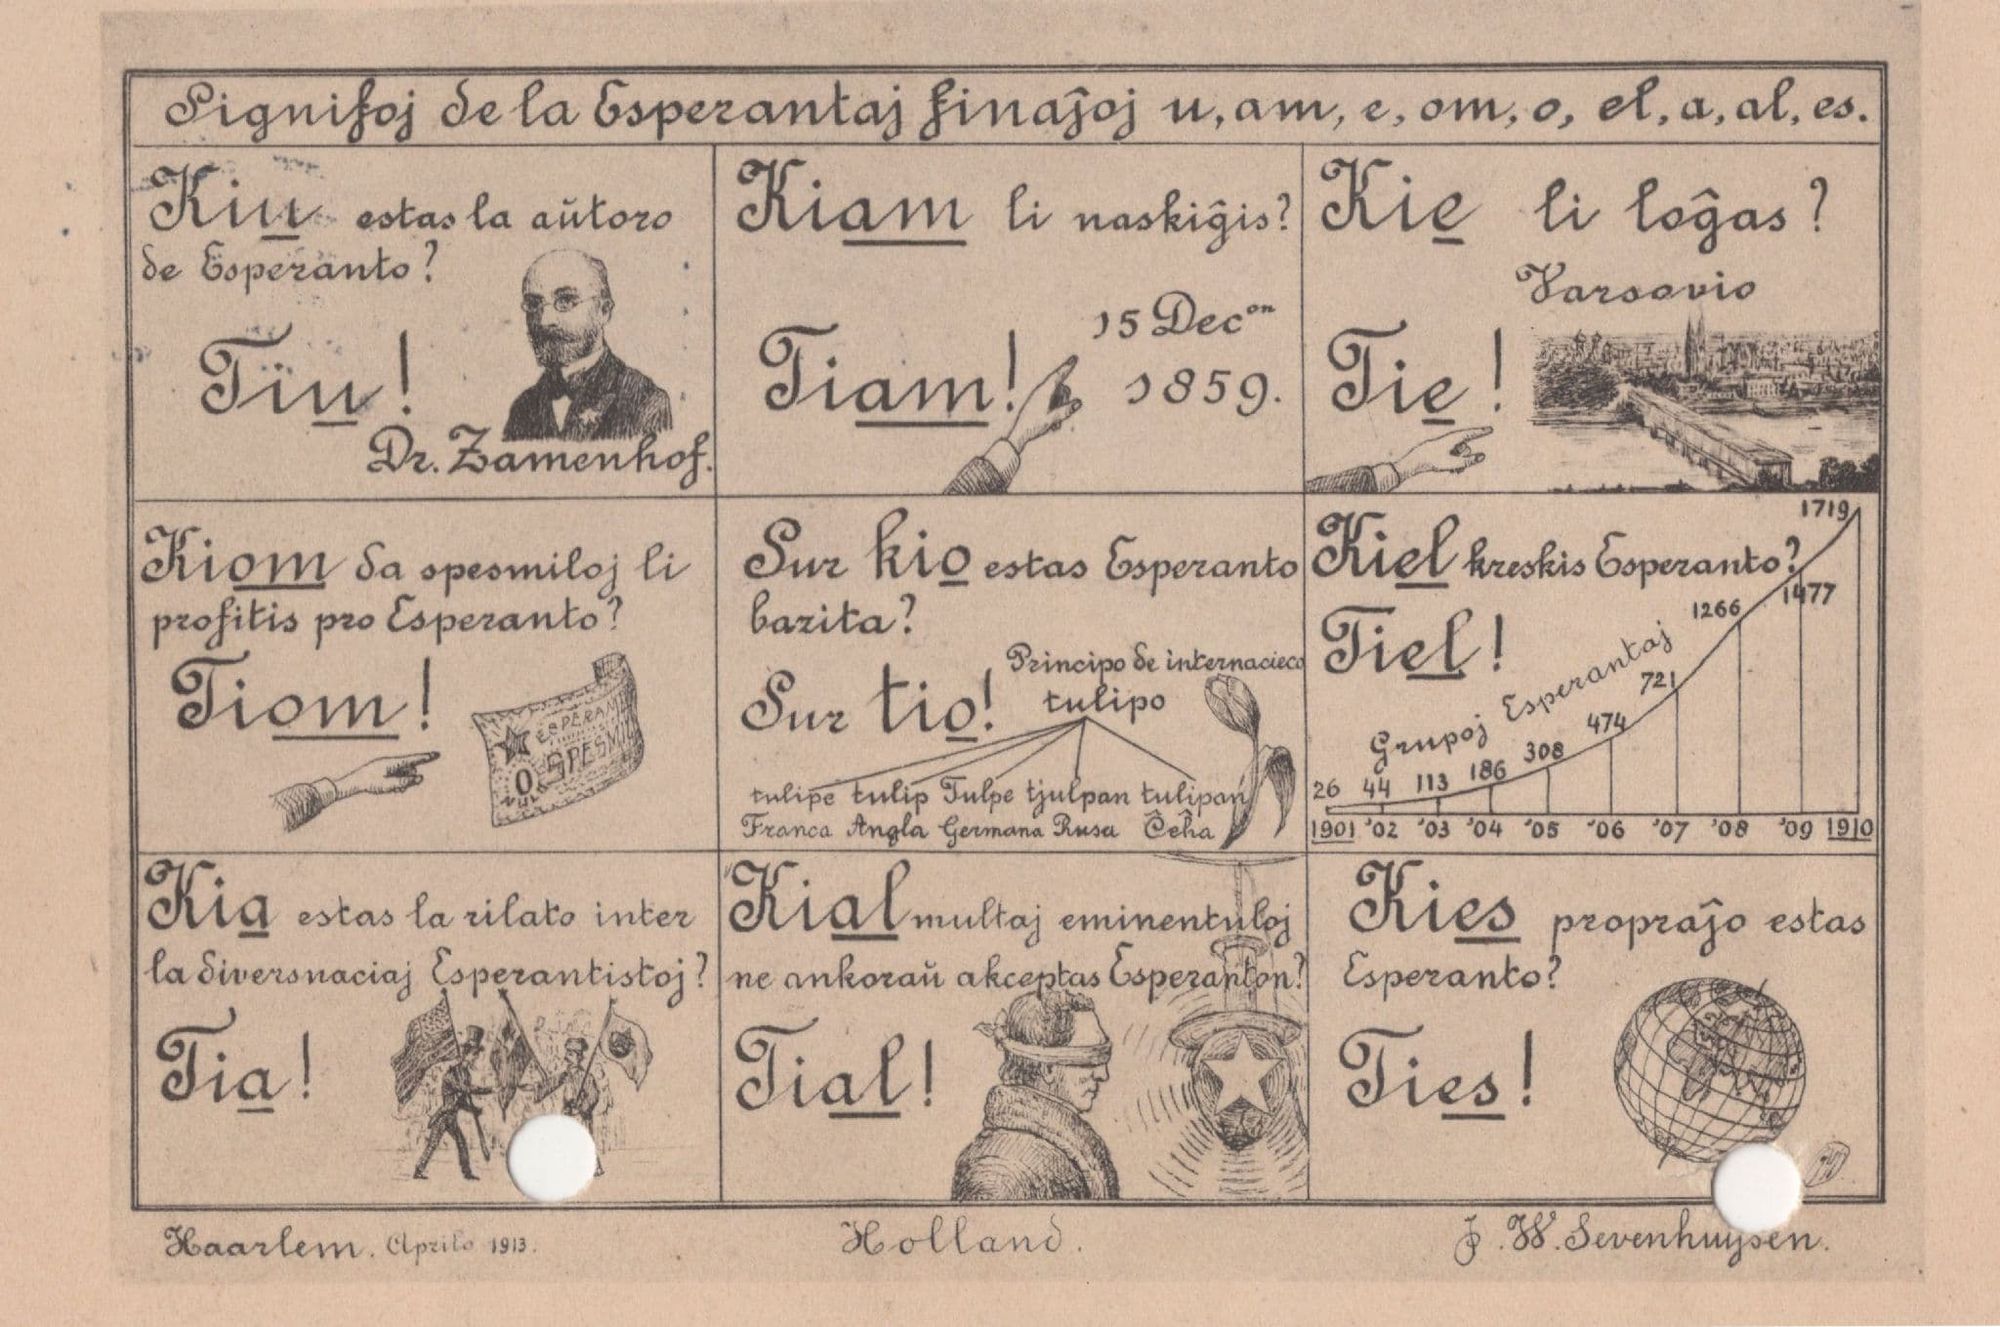 Signifoj de la Esperantaj finaĵoj u, am, e, om, o, el, a, al, es.
Kiu estas la aŭtoro
de Esperanto?
Tiu!
Dr. Zamenhof.
Kiam li naskiĝis?
15 Decon
Tiam!
1859.
Kie li loĝas?
Varsovio
Tie!
Kiom da spesmiloj li
profitis pro Esperanto?
Tiom!
0 SPESMIL
Sur kio estas Esperanto
bazita?
Principo de internacieco
Sur tio!
tulipo
tulipe tulip Tulpe tjulpan tulipan
Franca Angla Germana Rusa Ĉeĥa
Kiel kreskis Esperanto?
Tiel!
Grupoj Esperantaj
26 44 113 186 308 474 721 1266 1477 1719
1901 '02 '03 '04 '05 '06 '07 '08 '09 1910
Kia estas la rilato inter
la diversnaciaj Esperantistoj?
Tia!
Kial multaj eminentuloj
ne ankoraŭ akceptas Esperanton?
Tial!
Kies propraĵo estas
Esperanto?
Ties!
Haarlem. Aprilo 1913. Holland. J. W. Sevenhuijsen.